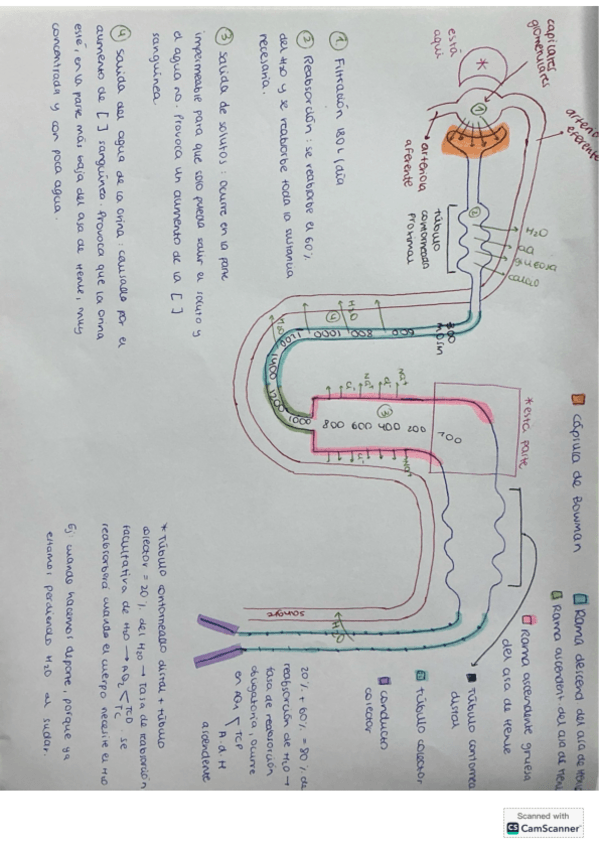 capilares
glomerulares
*
está
aquí
①
arteriola
aferente
arteriola
eferente
②
túbulo
contorneado
proximal
H₂O
aa
glucosa
① Filtración 180 L/día
② Reabsorción: se reabsorbe el 60%
del H₂O y se reabsorbe toda la sustancia
necesaria.
③ Salida de solutos: ocurre en la parte
impermeable para que solo pueda salir el soluto y
el agua no. Provoca un aumento de la [ ]
sanguínea
④ Salida del agua de la orina: causado por el
aumento de [ ] sanguínea. Provoca que la orina
esté, en la parte más baja del asa de Henle, muy
concentrada y con poca agua.
300
mOsm
600
800
1000
1200
1400
1200
1000
④
H₂O
H₂O
800
600
400
200
100
③
Na⁺
Cl⁻
Na⁺
Cl⁻
Na⁺
Cl⁻
Cl⁻
Na⁺
* esta parte
sangre
H₂O
cápsula de Bowman
Rama descend del asa de Henle
Rama ascendent. del asa de Henle
Rama ascendente gruesa
del asa de Henle
Túbulo contorneado
distal
túbulo colector
conducto
colector
20% + 60% = 80% de
reabsorción de H₂O →
tasa de reabsorción
obligatoria, ocurre
en
TCP
A d H
ascendente
* Túbulo contorneado distal + túbulo
colector = 20% del H₂O → tasa de reabsorción
facultativa de H₂O →
TCD
TC
. se
reabsorberá cuando el cuerpo necesite el H₂O
Ej: cuando hacemos deporte, porque ya
estamos perdiendo H₂O al sudar.
Scanned with
CS CamScanner